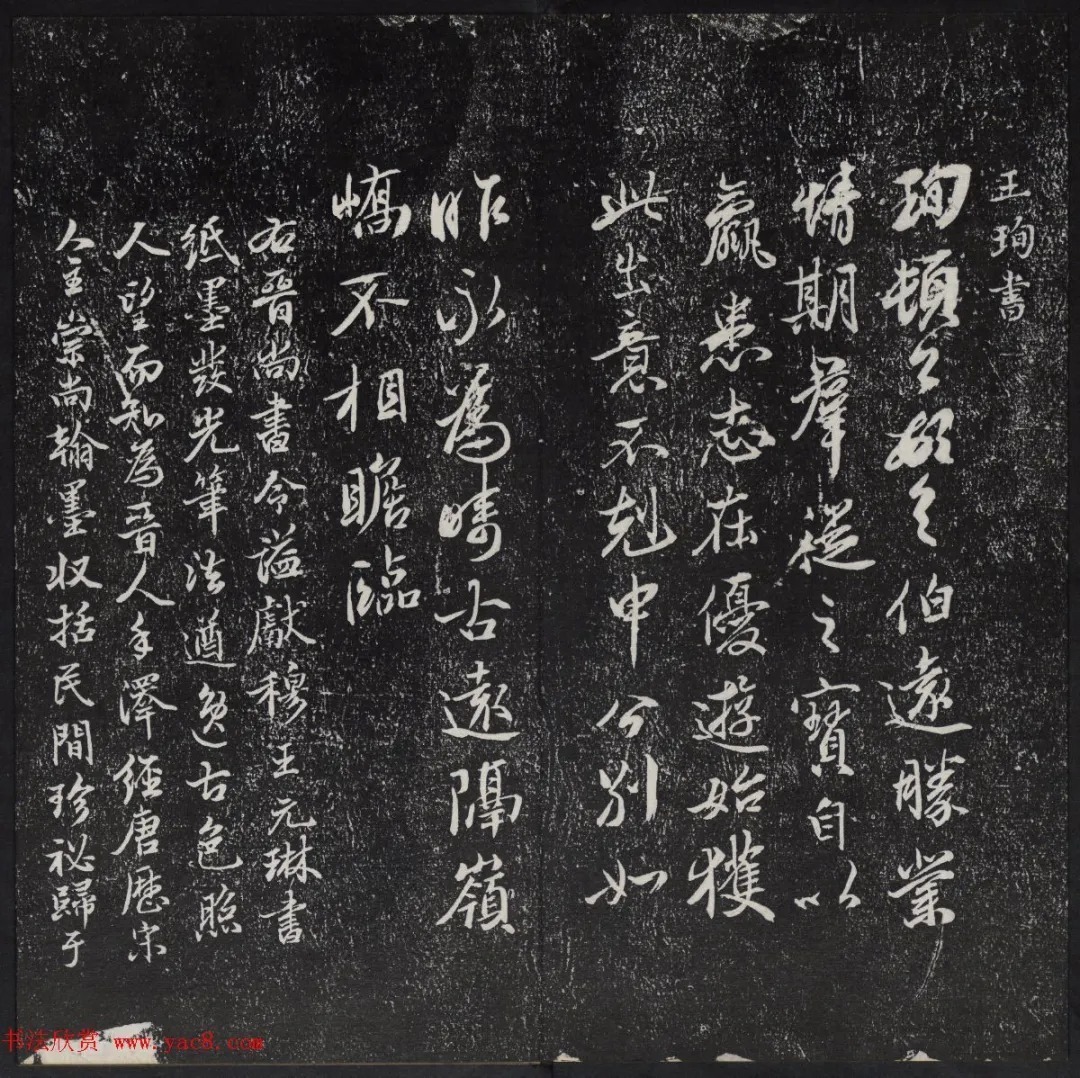 王珣書
珣頓首頓首伯遠勝業
情期羣從之寶自以
羸患志在優遊始獲
此出意不剋申分別如
昨永為疇古遠隔嶺
嶠不相瞻臨
右晉尚書令謚獻穆王元琳書
紙墨發光筆法遒逸古色照
人望而知為晉人手澤經唐歷宋
人主崇尚翰墨收括民間珍祕歸于
书法欣赏 www.yac8.com